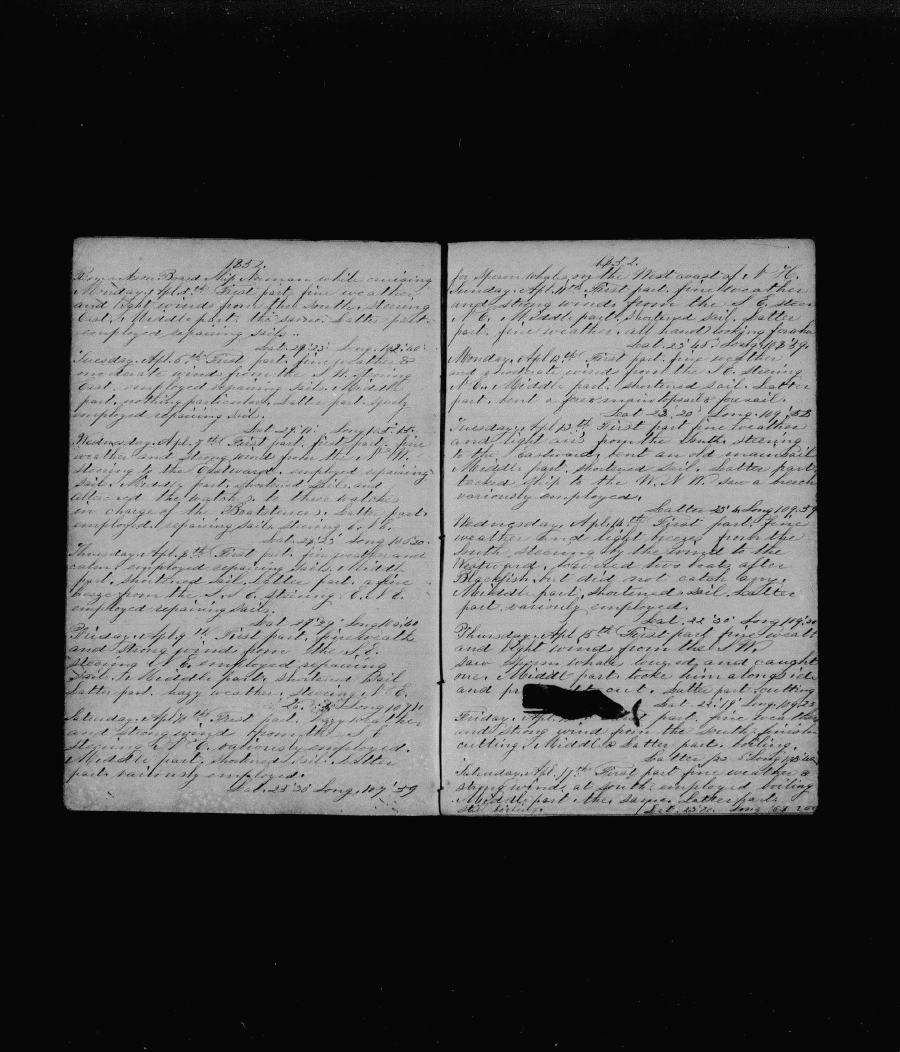 1852.
on Board Ship while cruising
Monday, Apl. 5th First part, fine weather
and light wind from the South, steering
East, Middle part, the same. Latter part.
employed repairing sails.
Lat. 29°23' Long. 102°
Tuesday, Apl. 6th First part, fine weather &
moderate wind from the S.W. steering
East, employed repairing sails. Middle
part, nothing particular. Latter part.
employed repairing sail.
Lat. 29°11' Long. 105°15'
Wednesday, Apl. 7th First part, first part, fine
weather and strong wind from the N.W.
steering to the Eastward, employed repairing
sail. Middle part, shortened sail and
altered the watches to three watches
in charge of the Boatsteerers. Latter part.
employed repairing sails, steering E.N.E.
Lat. 28° Long
Thursday, Apl. 8th First part, fine weather and
calm, employed repairing sails. Middle
part, shortened sail. Latter part. a fine
breeze from the S.S.E. steering E.N.E.
employed repairing sails.
Lat. Long.
Friday, Apl. 9th First part, fine weath
and strong wind from the S.E.
steering N.E. employed repairing
sail. Middle part, shortened sail
Latter part. hazy weather. steering N.E.
Long 107
Saturday, Apl. 10th First part, weather
and strong wind from the S.E.
steering N.E. variously employed.
Middle part, shortened sail. Latter
part, variously employed.
Lat. 25°20' Long. 109°59
1852.
for Sperm whales on the West coast of N.
Sunday, Apl. 11th First part, fine weather
and strong wind, from the S.E. steer
N.E. Middle part, shortened sail. Latter
part, fine weather. all hands looking
Lat. 23°45' Long. 108°39
Monday, Apl. 12th First part, fine weather
and moderate wind from the S.E. steering
N.E. Middle part, shortened sail. Latter
part, bent a fore, maintopsail & foresail.
Lat 23°20' Long. 109°53
Tuesday, Apl. 13th First part fine weather
and light airs from the South, steering
to the Eastward, bent an old mainsail
Middle part, shortened sail. Latter part
tacked ship to the W.N.W. saw a
variously employed.
Latter 23°4 Long 109°59
Wednesday, Apl. 14th First part, fine
weather and light breeze from the
South steering by the wind to the
Westward, lowered two boats after
Blackfish, but did not catch any.
Middle part, shortened sail, Latter
part, variously employed.
Lat. 22°30' Long 109°30
Thursday, Apl. 15th First part fine weath
and light winds from the S.W.
saw Sperm whales lowered and caught
one. Middle part. took him alongside
and cut. Latter part cutting
Lat. 22°17' Long. 109°22
Friday, Apl. part, fine weather
and strong wind from the South, finished
cutting. Middle & Latter part. boiling.
Latter Long
Saturday, Apl. 17th First part fine weather &
strong winds at South employed boiling
Middle part the same. Latter part
still boiling. Lat. 23°20. Long